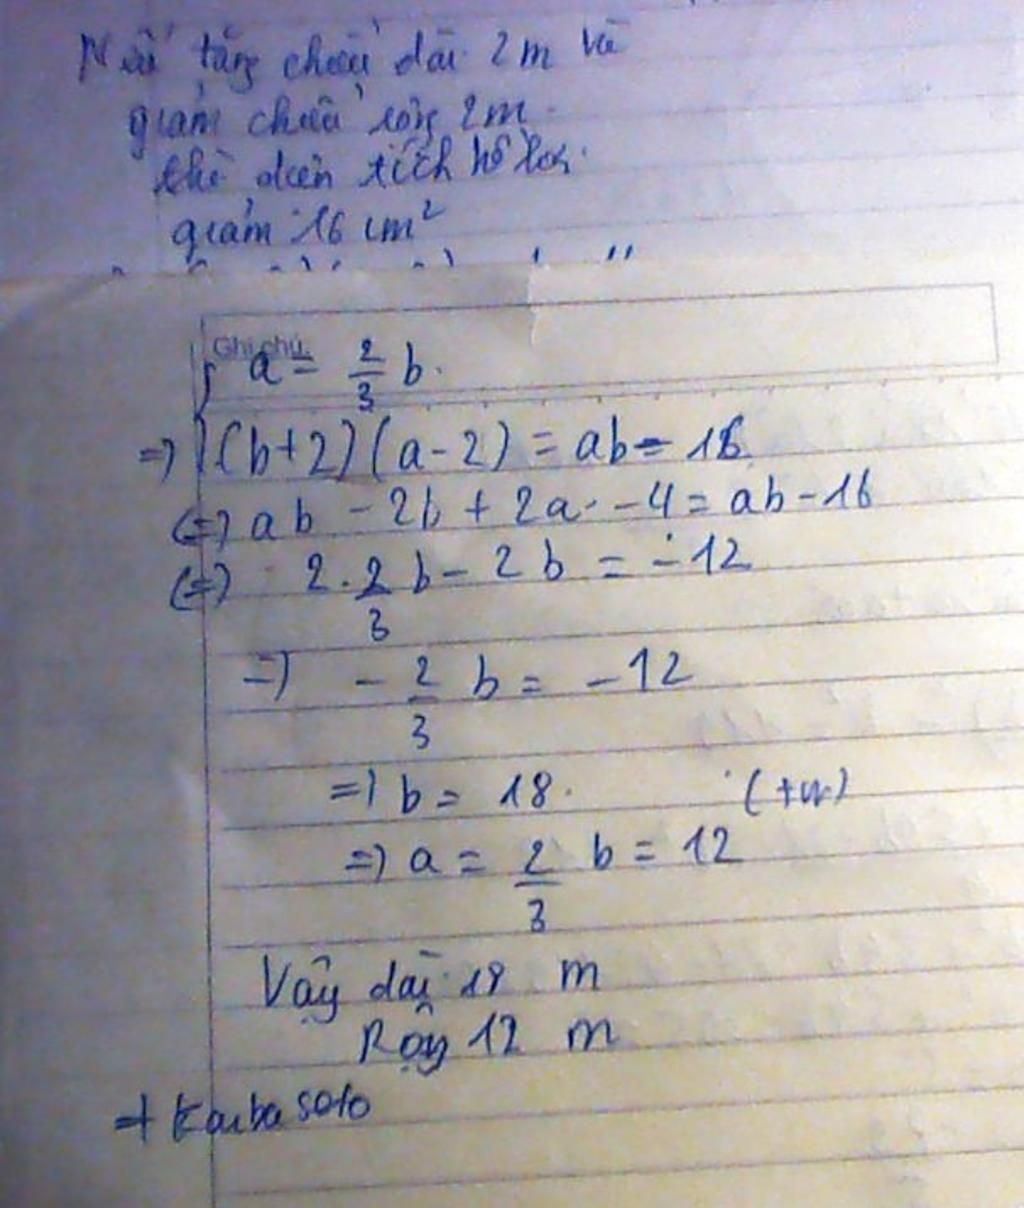 Nếu tăng chiều dài 2m và
giảm chiều rộng 2m.
thì diện tích
giảm 16 cm²
Ghi chú
a = 2/3 b.
=> (b+2)(a-2) = ab - 16
(=) ab - 2b + 2a - 4 = ab - 16
(=) 2. 2/3 b - 2b = -12
=) - 2/3 b = -12
=) b = 18. (+m)
=) a = 2/3 b = 12
Vậy dài 18 m
Rộng 12 m
=) Kaibasoto